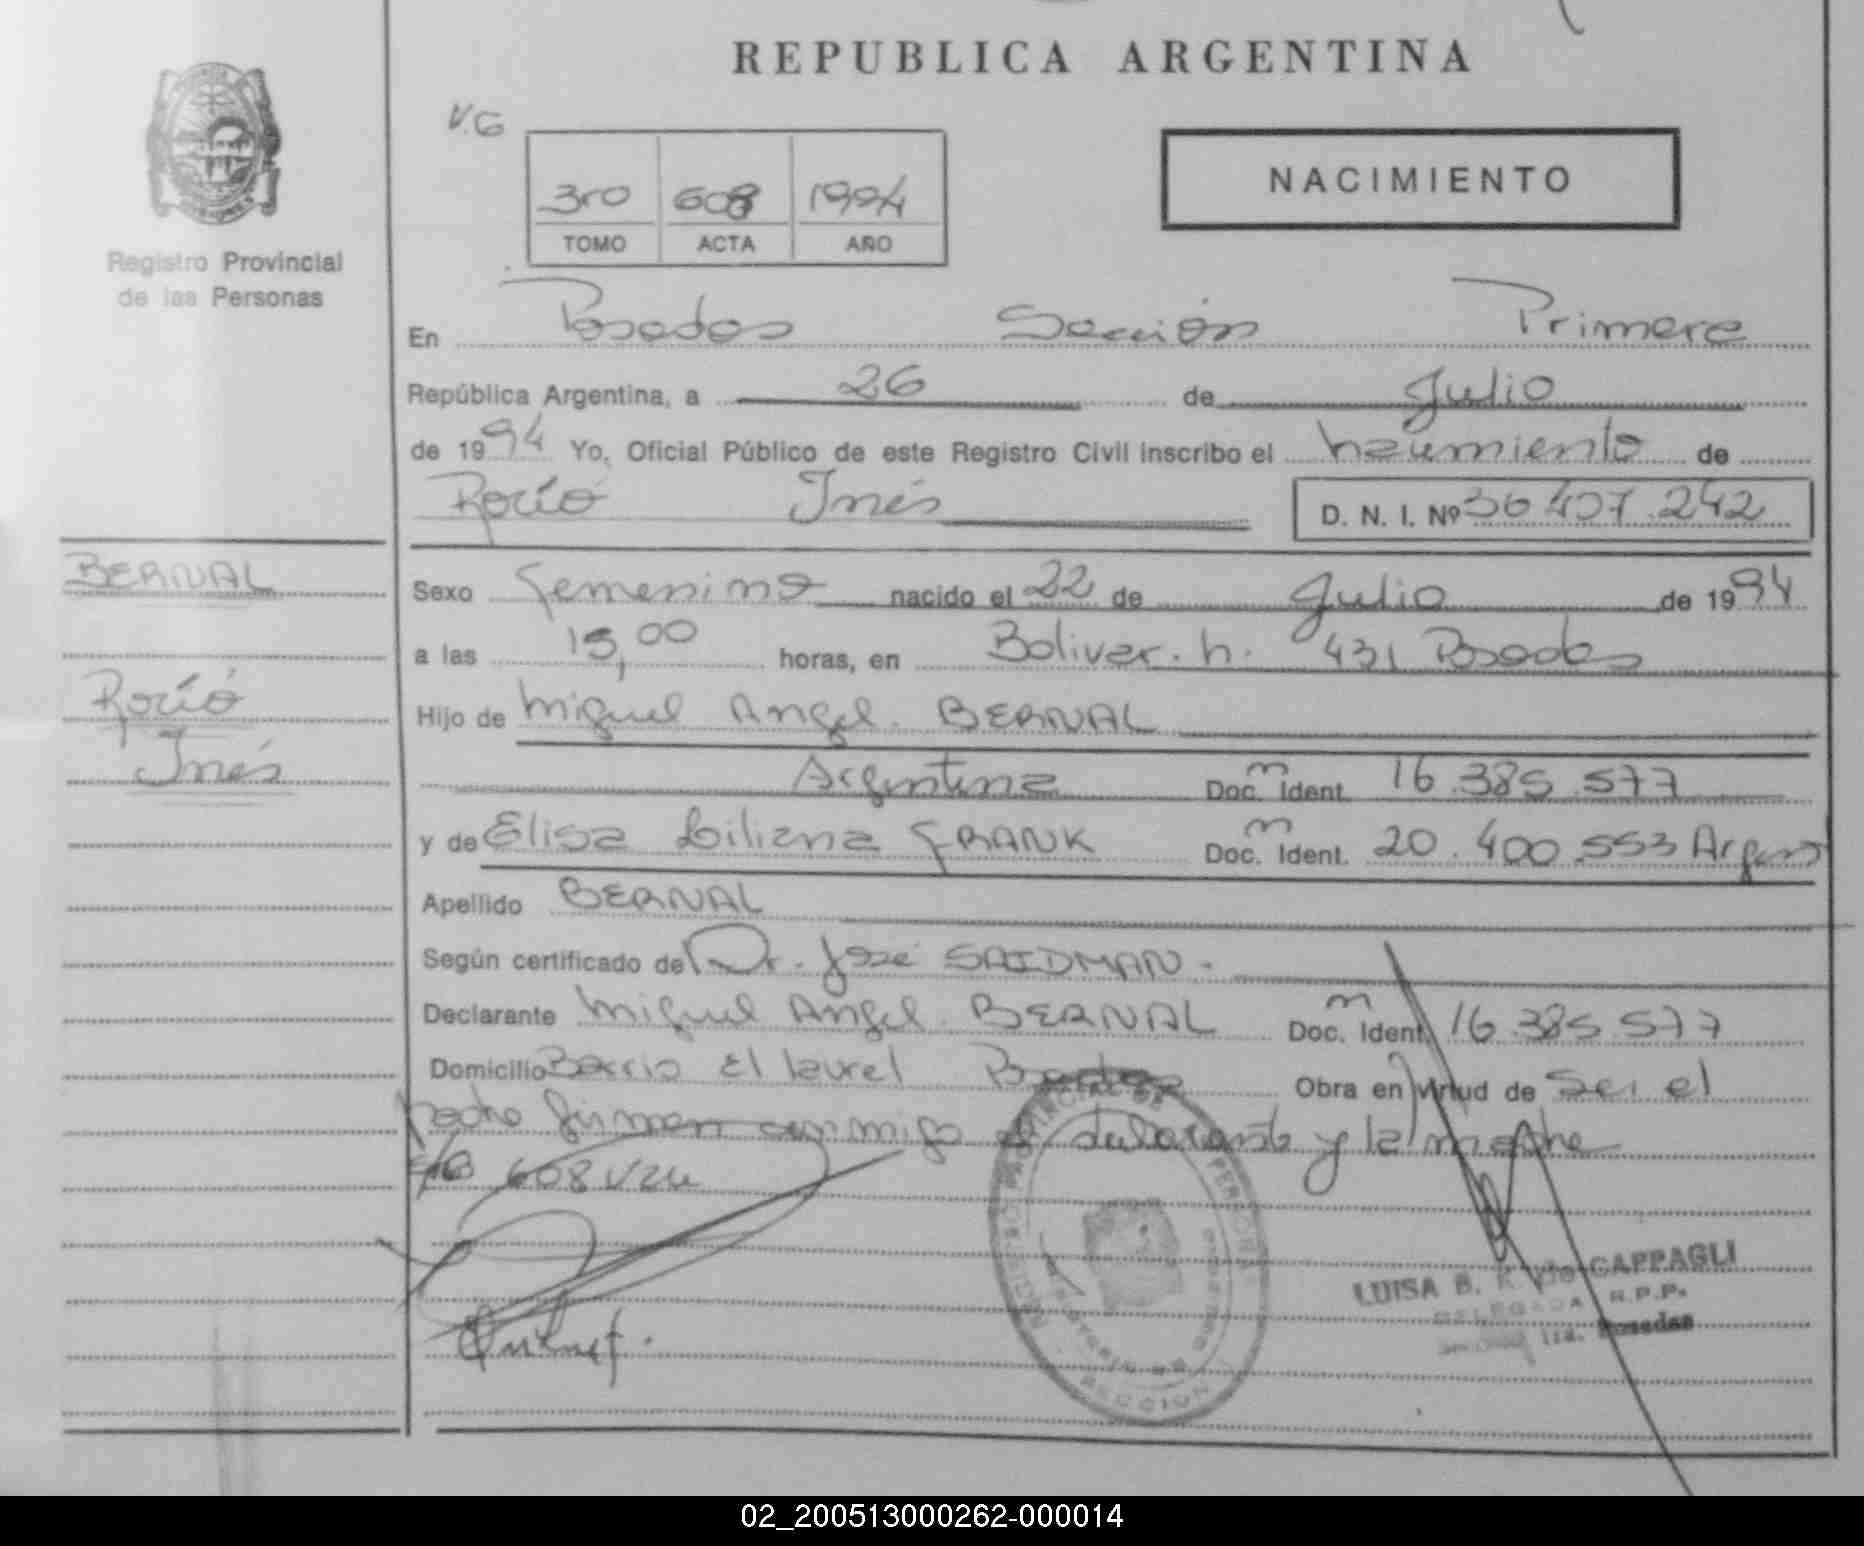 REPUBLICA ARGENTINA
V.G
3ro 608 1994
TOMO ACTA AÑO
NACIMIENTO
Registro Provincial
de las Personas
En Posadas Sección Primera
República Argentina, a 26 de Julio
de 1994 Yo, Oficial Público de este Registro Civil inscribo el nacimiento de
Rocío Inés D. N. I. Nº 36.407.242
BERNAL
Rocío
Inés
Sexo Femenino nacido el 22 de Julio de 1994
a las 15,00 horas, en Bolivar. n. 431 Posadas
Hijo de Miguel Angel. BERNAL
Argentina Doc. m Ident. 16.385.577
y de Elisa Liliana FRANK Doc. m Ident. 20.400.553
Apellido BERNAL
Según certificado de Dr. José SAIDMAN.
Declarante Miguel Angel. BERNAL Doc. m Ident. 16.385.577
Domicilio Barrio El laurel Posadas Obra en virtud de Ser el
Padre firman conmigo el declarante y la madre
608
REGISTRO PROVINCIAL DE LAS PERSONAS
SECCION
LUISA B. de CAPPAGLI
DELEGADA R.P.P.
1ra. Posadas
02_200513000262-000014